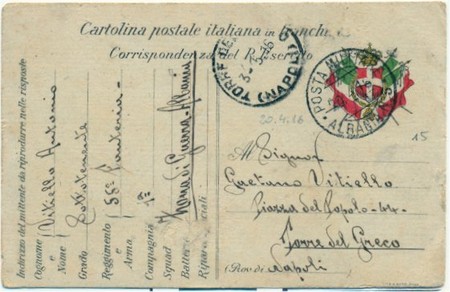 Cartolina postale italiana in franchi
Corrispondenza del R. Esercito
TORRE DEL
(NAPOLI)
3-5-16
POSTA MILITARE
ALBANIA
20.4.16
15
Indirizzo del mittente da riprodurre nelle risposte
Cognome e Nome Vitiello Antonio
Grado Sottotenente
Reggimento e Arma 55° Fanteria
Compagnia 1ª
Squad
Batter
Ripar
ciali
Zona di Guerra - Albania
Al Signor
Gaetano Vitiello
Piazza del Popolo - 44 -
Torre del Greco
(Prov. di Napoli